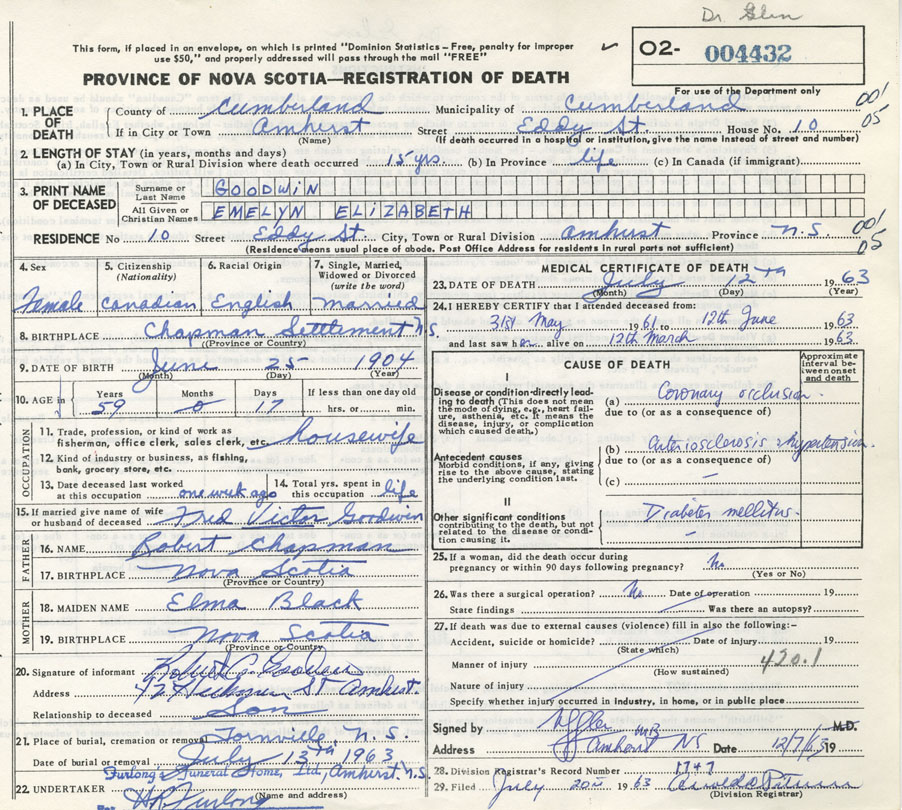 Dr. Glen
This form, if placed in an envelope, on which is printed "Dominion Statistics – Free, penalty for improper
use $50," and properly addressed will pass through the mail "FREE"
✓ O2- 004432
PROVINCE OF NOVA SCOTIA—REGISTRATION OF DEATH
For use of the Department only
1. PLACE OF DEATH
County of Cumberland Municipality of Cumberland 001 05
If in City or Town Amherst Street Eddy St. House No. 10
(Name) (If death occurred in a hospital or institution, give the name instead of street and number)
2. LENGTH OF STAY (in years, months and days)
(a) In City, Town or Rural Division where death occurred 15 yrs. (b) In Province life (c) In Canada (if immigrant)
3. PRINT NAME OF DECEASED
Surname or Last Name GOODWIN
All Given or Christian Names EMELYN ELIZABETH
RESIDENCE No 10 Street Eddy St. City, Town or Rural Division Amherst Province N.S. 001 05
(Residence means usual place of abode. Post Office Address for residents in rural parts not sufficient)
4. Sex Female
5. Citizenship (Nationality) Canadian
6. Racial Origin English
7. Single, Married, Widowed or Divorced (write the word) Married
8. BIRTHPLACE Chapman Settlement N.S.
(Province or Country)
9. DATE OF BIRTH June 25 1904
(Month) (Day) (Year)
10. AGE in Years 59 Months 0 Days 17 If less than one day old hrs. or min.
OCCUPATION
11. Trade, profession, or kind of work as
fisherman, office clerk, sales clerk, etc. housewife
12. Kind of industry or business, as fishing,
bank, grocery store, etc.
13. Date deceased last worked at this occupation one week ago
14. Total yrs. spent in this occupation life
15. If married give name of wife or husband of deceased Fred Victor Goodwin
FATHER
16. NAME Robert Chapman
17. BIRTHPLACE Nova Scotia
(Province or Country)
MOTHER
18. MAIDEN NAME Elma Black
19. BIRTHPLACE Nova Scotia
(Province or Country)
20. Signature of informant Goodwin
Address St Amherst.
Relationship to deceased Son
21. Place of burial, cremation or removal N.S.
Date of burial or removal July 13th 1963
Furlong's Funeral Home, Ltd., Amherst, N.S.
22. UNDERTAKER Furlong
(Name and address)
MEDICAL CERTIFICATE OF DEATH
23. DATE OF DEATH July 12th 1963
(Month) (Day) (Year)
24. I HEREBY CERTIFY that I attended deceased from:
31st May 1961 to 12th June 1963
and last saw her alive on 12th March 1963.
CAUSE OF DEATH
Approximate interval between onset and death
I
Disease or condition directly leading to death (This does not mean the mode of dying, e.g., heart failure, asthenia, etc. It means the disease, injury, or complication which caused death.)
(a) Coronary occlusion
due to (or as a consequence of)
Antecedent causes
Morbid conditions, if any, giving rise to the above cause, stating the underlying condition last.
(b) Arteriosclerosis hypertension.
due to (or as a consequence of)
(c) –
II
Other significant conditions
contributing to the death, but not related to the disease or condition causing it.
Diabetes mellitus.
–
25. If a woman, did the death occur during
pregnancy or within 90 days following pregnancy? No
(Yes or No)
26. Was there a surgical operation? No Date of operation 19
State findings Was there an autopsy?
27. If death was due to external causes (violence) fill in also the following:–
Accident, suicide or homicide? Date of injury 19
(State which)
Manner of injury 420.1
(How sustained)
Nature of injury
Specify whether injury occurred in industry, in home, or in public place
Signed by M.D.
Address Amherst NS Date 12/7/63 19
28. Division Registrar's Record Number 1747
29. Filed July 1963
(Division Registrar)